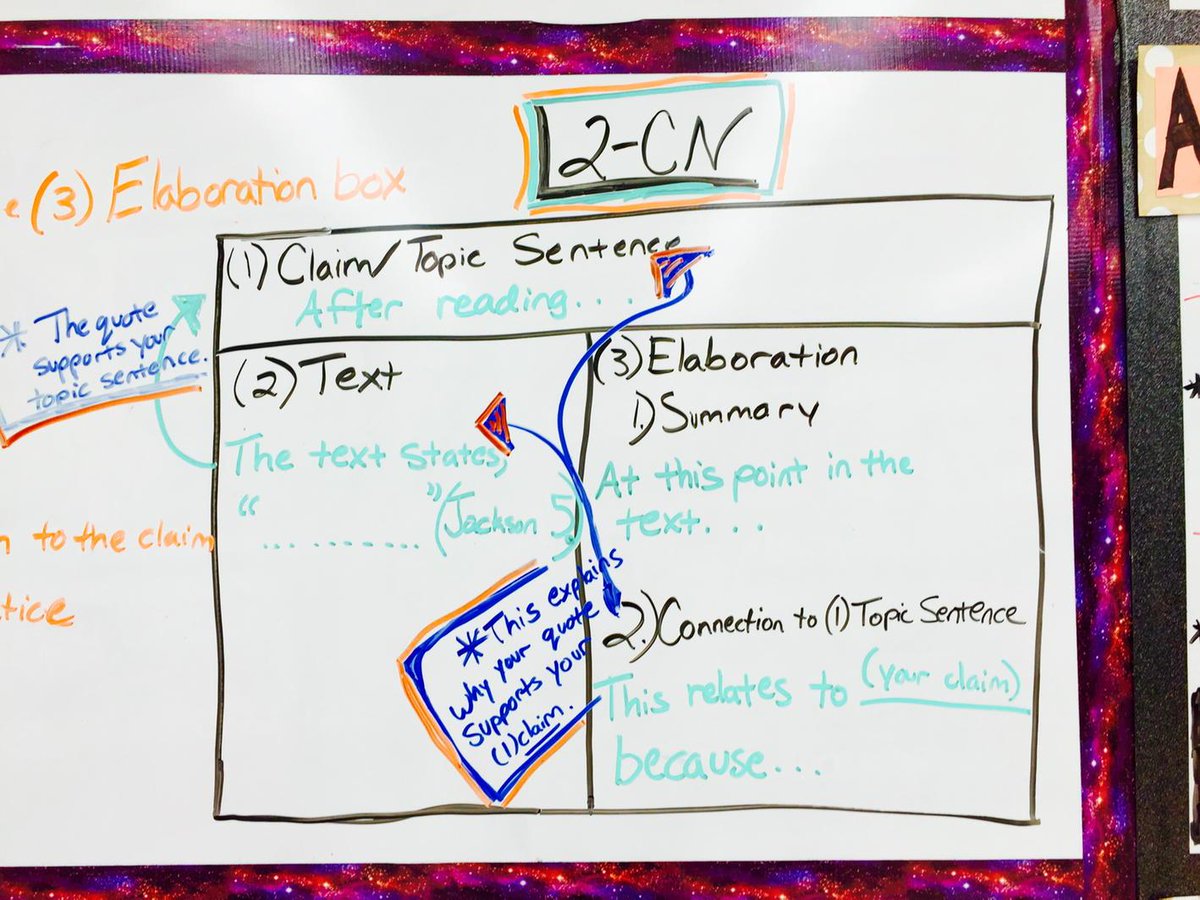 2-CN
e (3) Elaboration box
(1) Claim/Topic Sentence
After reading....
* The quote
supports your
topic sentence.
(2) Text
The text states,
"
..........." (Jackson 5)
* This explains
why your quote
supports your
(1) claim.
(3) Elaboration
1.) Summary
At this point in the
text...
2.) Connection to (1) Topic Sentence
This relates to (your claim)
because...
n to the claim
tice
A